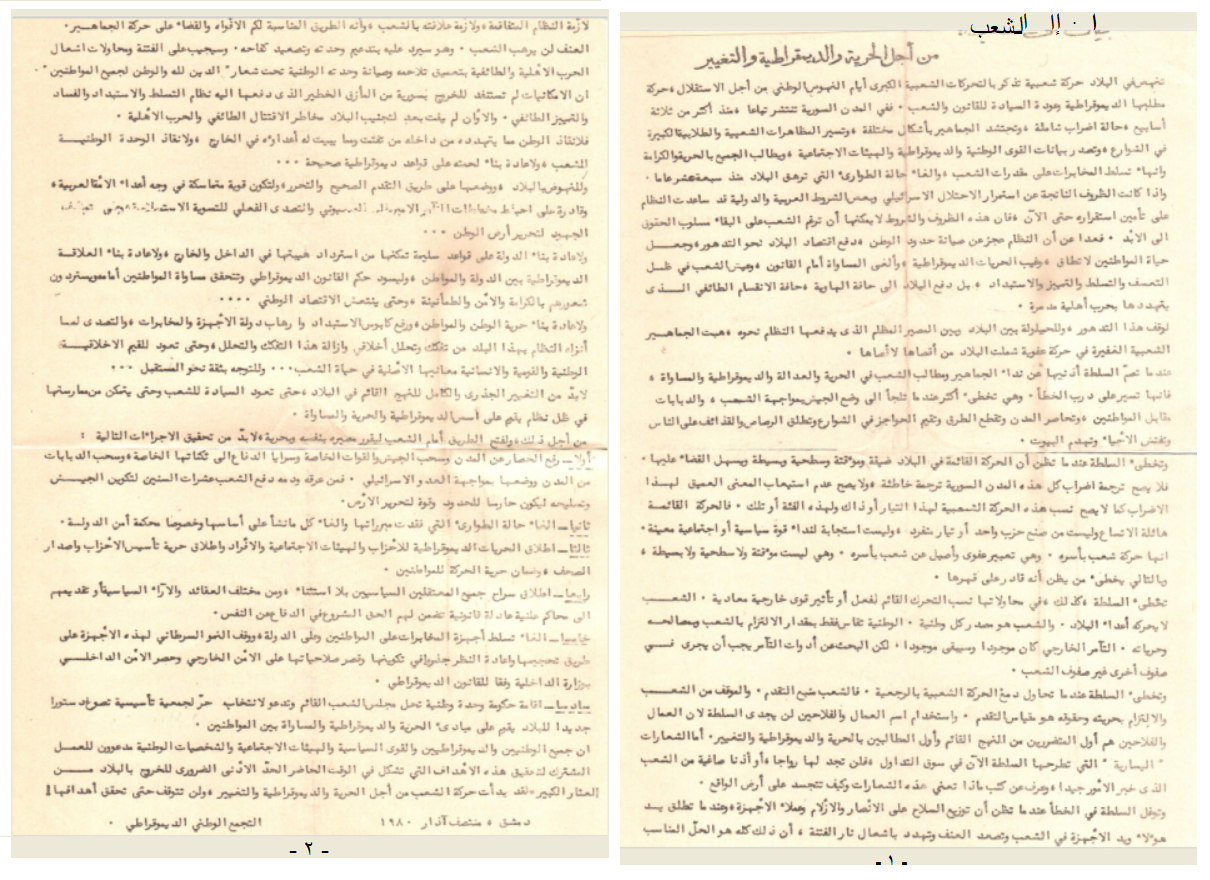 بيان إلى الشعب
من أجل الحرية والديمقراطية والتغيير
تنهض في البلاد حركة شعبية تذكر بالتحركات الشعبية الكبرى أيام النهوض الوطني من أجل الاستقلال ، حركة
مطلبها الديموقراطية وعودة السيادة للقانون والشعب . ففي المدن السورية تنتشر تباعا ، منذ أكثر من ثلاثة
أسابيع ، حالة اضراب شاملة ، وتحتشد الجماهير بأشكال مختلفة ، وتسير المظاهرات الشعبية والطلابية الكبيرة
في الشوارع ، وتصدر بيانات القوى الوطنية والديموقراطية والهيئات الاجتماعية ، ويطالب الجميع بالحرية والكرامة
وانهاء تسلط المخابرات على مقدرات الشعب ، والغاء حالة الطوارىء التي ترهق البلاد منذ سبعة عشر عاما .
واذا كانت الظروف الناتجة عن استمرار الاحتلال الاسرائيلي وبعض الشروط العربية والدولية قد ساعدت النظام
على تأمين استقراره حتى الآن ، فان هذه الظروف والشروط لا يمكنها أن ترغم الشعب على البقاء مسلوب الحقوق
الى الأبد . فعدا عن أن النظام عجز عن صيانة حدود الوطن ، دفع اقتصاد البلاد نحو التدهور ، وجعــل
حياة المواطنين لا تطاق ، وغيب الحريات الديموقراطية ، وألغى المساواة أمام القانون ، وعيش الشعب في ظــل
التعسف والتسلط والتمييز والاستبداد ، بل دفع البلاد الى حافة الهاوية ، حافة الانقسام الطائفي الــذى
يتهددها بحرب أهلية مدمرة .
لوقف هذا التدهور ، وللحيلولة بين البلاد وبين المصير المظلم الذى يدفعها النظام نحوه ، هبت الجماهير
الشعبية الغفيرة في حركة عفوية شملت البلاد من أقصاها لأقصاها .
عندما تصمّ السلطة أذنيها عن نداء الجماهير ومطالب الشعب في الحرية والعدالة والديموقراطية والمساواة ،
فانها تسير على درب الخطأ . وهي تخطىء أكثر عندما تلجأ الى وضع الجيش بمواجهة الشعب ، والدبابات
مقابل المواطنين ، وتحاصر المدن وتقطع الطرق وتقيم الحواجز في الشوارع وتطلق الرصاص والقذائف على الناس
وتفتش الأحياء وتهدم البيوت .
وتخطىء السلطة عندما تظن أن الحركة القائمة في البلاد ضيقة ومؤقتة وسطحية وبسيطة ويسهل القضاء عليها .
فلا يصح ترجمة اضراب كل هذه المدن السورية ترجمة خاطئة ، ولا يصح عدم استيعاب المعنى العميق لهــذا
الاضراب كما لا يصح نسب هذه الحركة الشعبية لهذا التيار أو ذاك ولهذه الفئة أو تلك . فالحركة القائمــة
هائلة الاتساع وليست من صنع حزب واحد أو تيار منفرد ، وليست استجابة لنداء قوة سياسية أو اجتماعية معينة .
انها حركة شعب بأسره ، وهي تعبير عفوى وأصيل عن شعب بأسره . وهي ليست مؤقتة ولا سطحية ولا بسيطة ،
وبالتالي يخطىء من يظن أنه قادر على قهرها .
تخطىء السلطة ، كذلك ، في محاولاتها نسب التحرك القائم لفعل أو تأثير قوى خارجية معادية . الشعــب
لا يحركه أعداء البلاد . والشعب هو مصدر كل وطنية . الوطنية تقاس فقط بمقدار الالتزام بالشعب وبمصالحه
وحرياته . التآمر الخارجي كان موجودا وسيبقى موجودا . لكن البحث عن أدوات التآمر يجب أن يجرى فــي
صفوف أخرى غير صفوف الشعب .
وتخطىء السلطة عندما تحاول دمغ الحركة الشعبية بالرجعية . فالشعب منبع التقدم . والموقف من الشعــب
والالتزام بحريته وحقوقه هو مقياس التقدم . واستخدام اسم العمال والفلاحين لن يجدى السلطة لأن العمال
والفلاحين هم أول المتضررين من النهج القائم وأول المطالبين بالحرية والديموقراطية والتغيير . أما الشعارات
" اليسارية " التي تطرحها السلطة الآن في سوق التداول ، فلن تجد لها رواجا ، أو أذنا صاغية من الشعب
الذى خبر الأمور جيدا ، وعرف عن كثب ماذا تعني هذه الشعارات وكيف تتجسد على أرض الواقع .
وتوغل السلطة في الخطأ عندما تظن أن توزيع السلاح على الأنصار والأزلام وعملاء الأجهزة ، وعندما تطلق يــد
هؤلاء ويد الأجهزة في الشعب وتصعد العنف وتهدد باشعال نار الفتنة ، أن ذلك كله هو الحل المناسب
- ١ -
لأزمة النظام المتفاقمة ، ولأزمة علاقته بالشعب ، وأنه الطريق المناسبة لكم الأفواه والقضاء على حركة الجماهير .
العنف لن يرهب الشعب . وهو سيرد عليه بتدعيم وحدته وتصعيد كفاحه . وسيجيب على الفتنة ومحاولات اشعال
الحرب الأهلية والطائفية بتعميق تلاحمه وصيانة وحدته الوطنية تحت شعار " الدين لله والوطن لجميع المواطنين " .
ان الامكانيات لم تستنفد للخروج بسورية من المأزق الخطير الذى دفعها اليه نظام التسلط والاستبداد والفساد
والتمييز الطائفي . والأوان لم يفت بعد لتجنيب البلاد مخاطر الاقتتال الطائفي والحرب الأهلية .
فلانقاذ الوطن مما يتهدده من داخله من تفتت ومما يبيت له أعداؤه في الخارج ، ولانقاذ الوحدة الوطنيــة
للشعب ، ولاعادة بناء لحمته على قواعد ديموقراطية صحيحة ...
وللنهوض بالبلاد ، ووضعها على طريق التقدم الصحيح والتحرر ، ولتكون قوية متماسكة في وجه أعداء الأمة العربية ،
وقادرة على احباط مخططات التآمر الامبريالي الصهيوني والتصدى الفعلي للتسوية الاستسلامية
الجهود لتحرير أرض الوطن ...
ولاعادة بناء الدولة على قواعد سليمة تمكنها من استرداد هيبتها في الداخل والخارج ، ولاعادة بناء العلاقــة
الديموقراطية بين الدولة والمواطن ، وليسود حكم القانون الديموقراطي وتتحقق مساواة المواطنين أمامه ويستردون
شعورهم بالكرامة والأمن والطمأنينة ، وحتى ينتعش الاقتصاد الوطني ....
ولاعادة بناء حرية الوطن والمواطن ، ورفع كابوس الاستبداد وارهاب دولة الأجهزة والمخابرات ، والتصدى لمــا
أنزله النظام بهذا البلد من تفكك وتحلل أخلاقي وازالة هذا التفكك والتحلل ، وحتى تعود للقيم الاخلاقيــة
الوطنية والقومية والانسانية معانيها الأصلية في حياة الشعب ... وللتوجه بثقة نحو المستقبل ...
لابدّ من التغيير الجذرى والكامل للنهج القائم في البلاد ، حتى تعود السيادة للشعب وحتى يتمكن من ممارستها
في ظل نظام يقيم على أسس الديموقراطية والحرية والمساواة .
من أجل ذلك ، ولفتح الطريق أمام الشعب ليقرر مصيره بنفسه وبحرية ، لابدّ من تحقيق الاجراءات التالية :
أولا ــ رفع الحصار عن المدن وسحب الجيش والقوات الخاصة وسرايا الدفاع الى ثكناتها الخاصة ، وسحب الدبابات
من المدن ووضعها بمواجهة العدو الاسرائيلي . فمن عرقه ودمه دفع الشعب عشرات السنين لتكوين الجيــش
وتسليحه ليكون حارسا للحدود وقوة لتحرير الأرض .
ثانيا ــ الغاء حالة الطوارىء التي فقدت مبرراتها والغاء كل ما نشأ على أساسها وخصوصا محكمة أمن الدولــة .
ثالثا ــ اطلاق الحريات الديموقراطية للأحزاب والهيئات الاجتماعية والأفراد واطلاق حرية تأسيس الأحزاب واصدار
الصحف ، وضمان حرية الحركة للمواطنين .
رابعا ــ اطلاق سراح جميع المعتقلين السياسيين بلا استثناء ، ومن مختلف العقائد والآراء السياسية أو تقديمهم
الى محاكم علنية عادلة قانونية تضمن لهم الحق المشروع في الدفاع عن النفس .
خامسا ــ الغاء تسلط أجهزة المخابرات على المواطنين وعلى الدولة ، ووقف النمو السرطاني لهذه الأجهزة على
طريق تحجيمها واعادة النظر جذريا في تكوينها وقصر صلاحياتها على الأمن الخارجي وحصر الأمن الداخلــي
بوزارة الداخلية وفقا للقانون الديموقراطي .
سادسا ــ اقامة حكومة وحدة وطنية تحل مجلس الشعب القائم وتدعو لانتخاب حرّ لجمعية تأسيسية تصوغ دستورا
جديدا للبلاد يقيم على مبادىء الحرية والديموقراطية والمساواة بين المواطنين .
ان جميع الوطنيين والديموقراطيين والقوى السياسية والهيئات الاجتماعية والشخصيات الوطنية مدعوون للعمــل
المشترك لتحقيق هذه الأهداف التي تشكل في الوقت الحاضر الحدّ الأدنى الضرورى للخروج بالبلاد مــن
العثار الكبير ، لقد بدأت حركة الشعب من أجل الحرية والديموقراطية والتغيير ، ولن تتوقف حتى تحقق أهدافها !
دمشق ، منتصف آذار ١٩٨٠ التجمع الوطني الديموقراطي .
- ٢ -